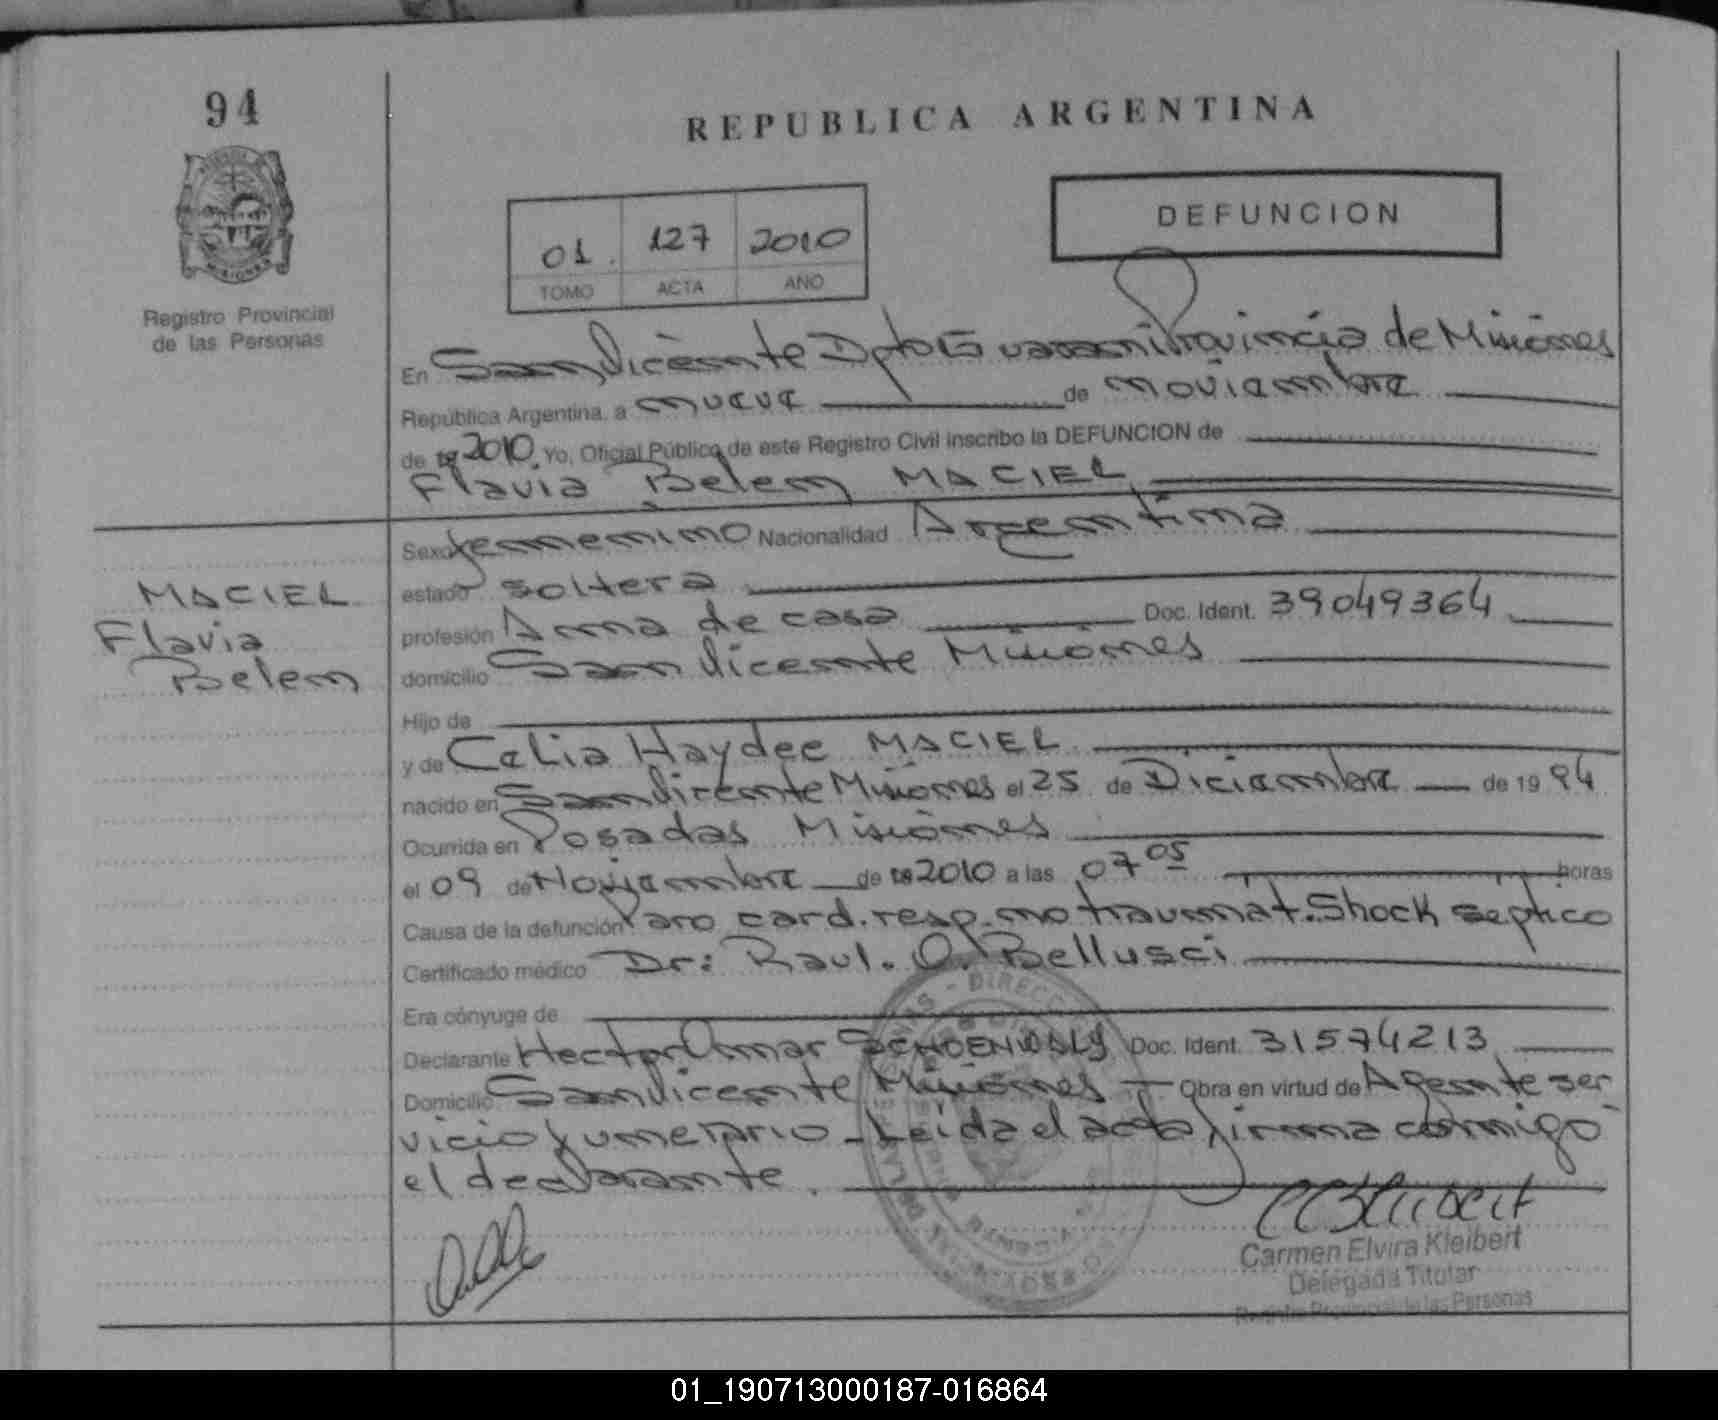 94
REPUBLICA ARGENTINA
DEFUNCION
01 127 2010
TOMO ACTA AÑO
Registro Provincial
de las Personas
En San Vicente Dpto Guarani Provincia de Misiones
República Argentina, a nueve de noviembre
de 19 2010. Yo, Oficial Público de este Registro Civil inscribo la DEFUNCION de
Flavia Belem MACIEL
MACIEL
Flavia
Belem
Sexo femenino Nacionalidad Argentina
estado soltera
profesión Ama de casa Doc. Ident. 39049364
domicilio San Vicente Misiones
Hijo de
y de Celia Haydee MACIEL
nacido en San Vicente Misiones el 25 de Diciembre de 1994
Ocurrida en Posadas Misiones
el 09 de Noviembre de 19 2010 a las 07 05 horas
Causa de la defunción Paro card. resp. no traumat. Shock septico
Certificado médico Dr: Raul. O. Bellusci
Era cónyuge de
Declarante Hector Omar Doc. Ident. 31574213
Domicilio San Vicente Misiones Obra en virtud de Agente ser
vicio funerario - Leida el acta firma conmigo
el declarante.
Carmen Elvira Kleibert
Delegada Titular
Registro Provincial de las Personas
01_190713000187-016864